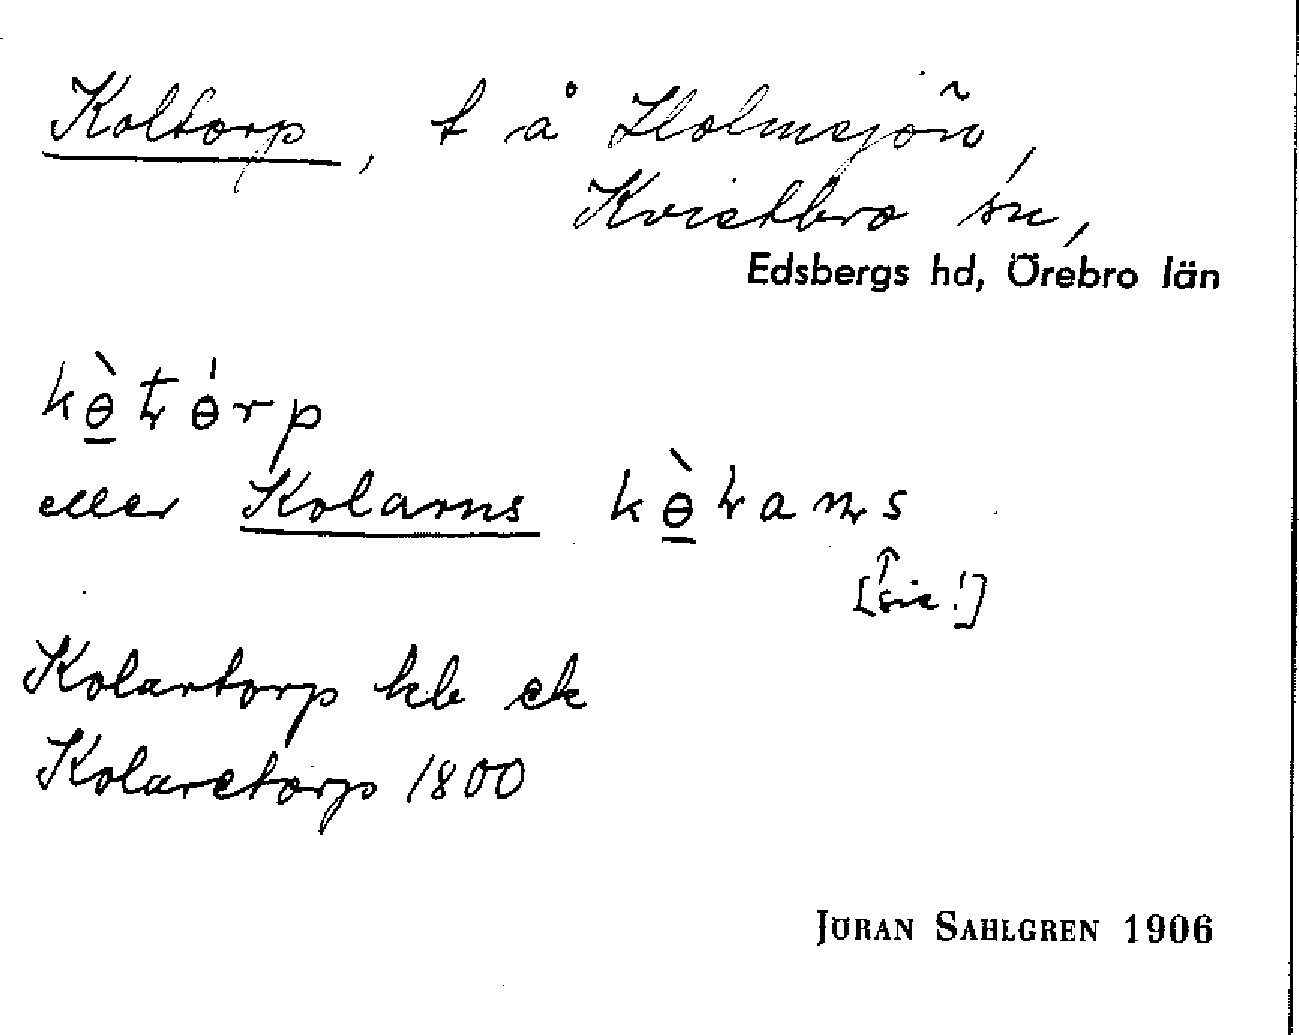 Koltorp, t å Holmsjön,
Kvistbro sn,
Edsbergs hd, Örebro län
kɵ̀ʈɵ́rp
eller Kolarns kɵ̀ɽaɳs
[sic!]
Kolartorp hb ek
Kolaretorp 1800
JÖRAN SAHLGREN 1906